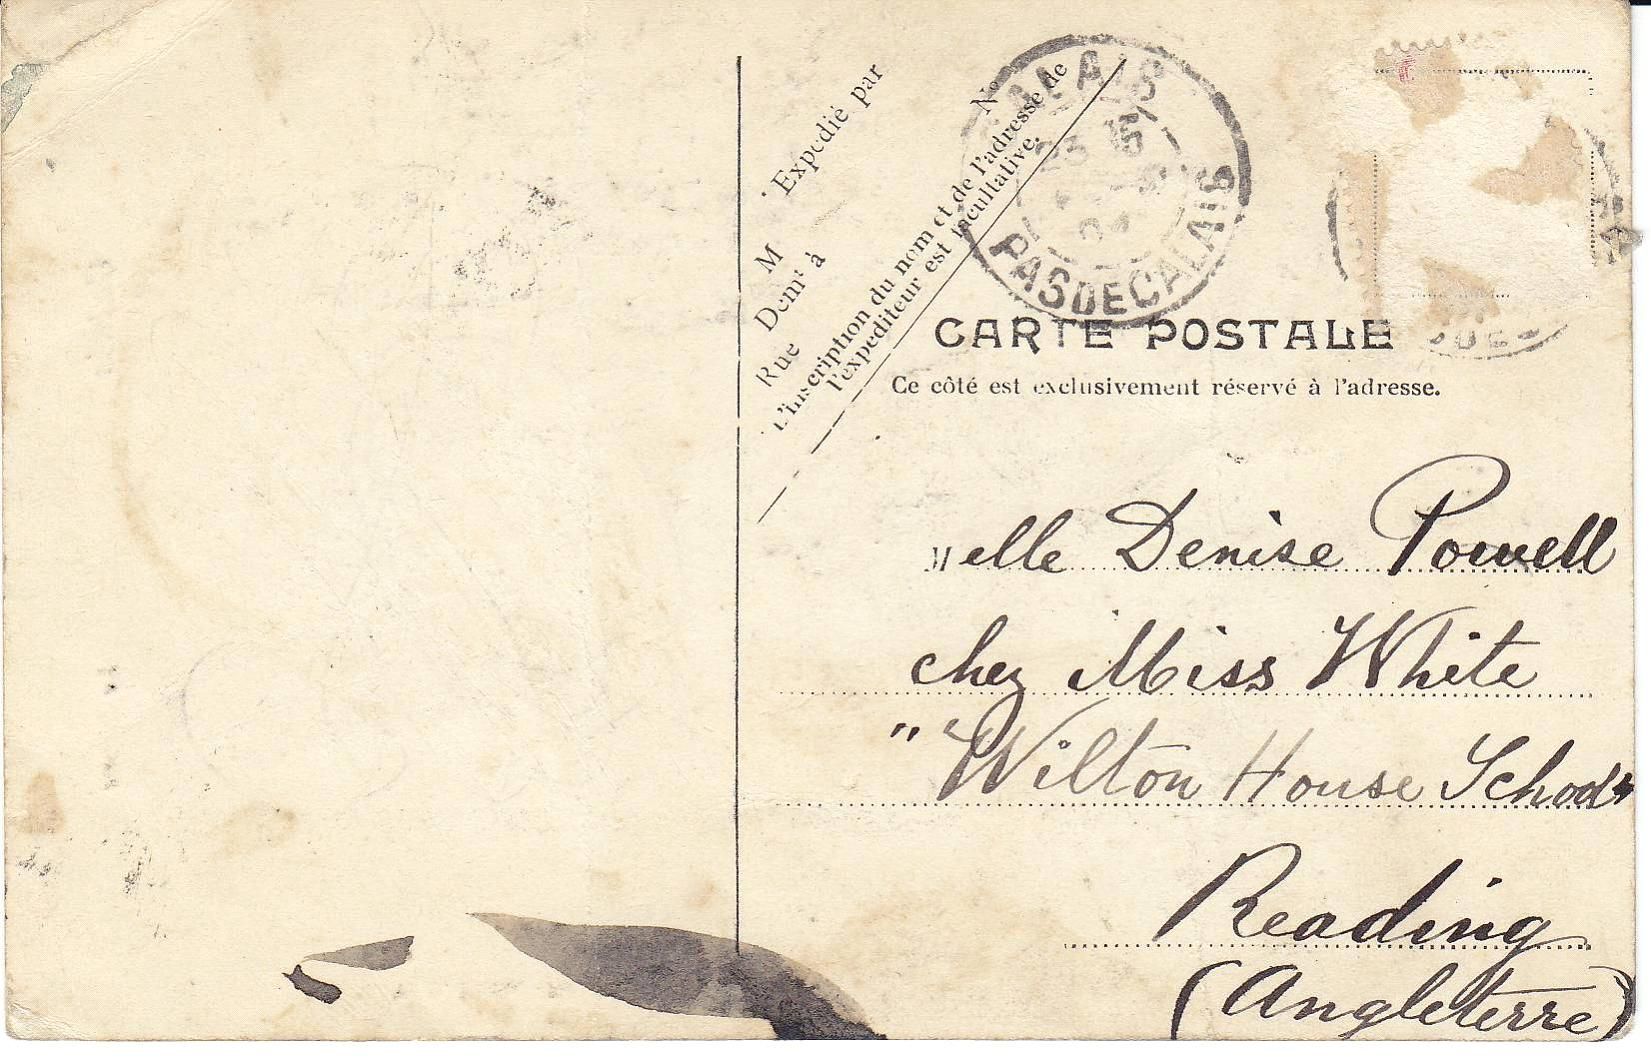 Expédié par
M
Demt à
Rue No
L'inscription du nom et de l'adresse de
l'expéditeur est facultative.
CALAIS
PAS DE CALAIS
CARTE POSTALE
Ce côté est exclusivement réservé à l'adresse.
Melle Denise Powell
chez Miss White
"Wilton House School"
Reading
(Angleterre)